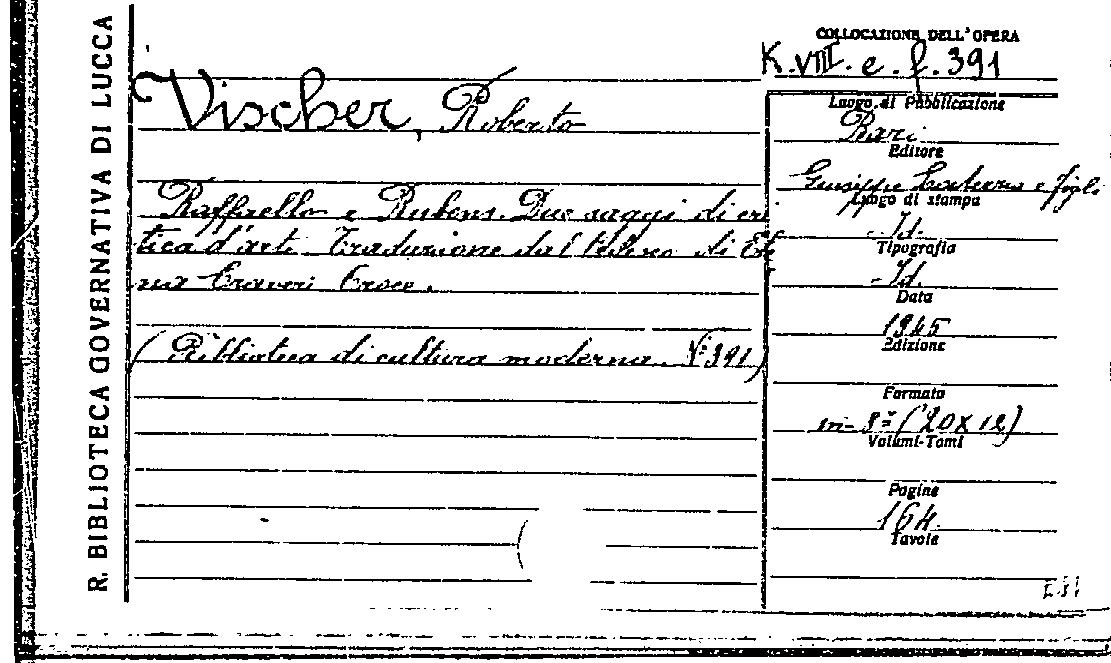 R. BIBLIOTECA GOVERNATIVA DI LUCCA
COLLOCAZIONE DELL'OPERA
K.VIII.e.f.391
Vischer, Roberto
Raffaello e Rubens. Due saggi di cri
tica d'arte. Traduzione dal tedesco di Ele
na Craveri Croce.
(Biblioteca di cultura moderna. Nº 391)
Luogo di Pubblicazione
Bari
Editore
Giuseppe Laterza e figli
Luogo di stampa
Id.
Tipografia
Id.
Data
1945
Edizione
Formato
in-8º (20x12)
Volumi-Tomi
Pagine
164.
Tavole